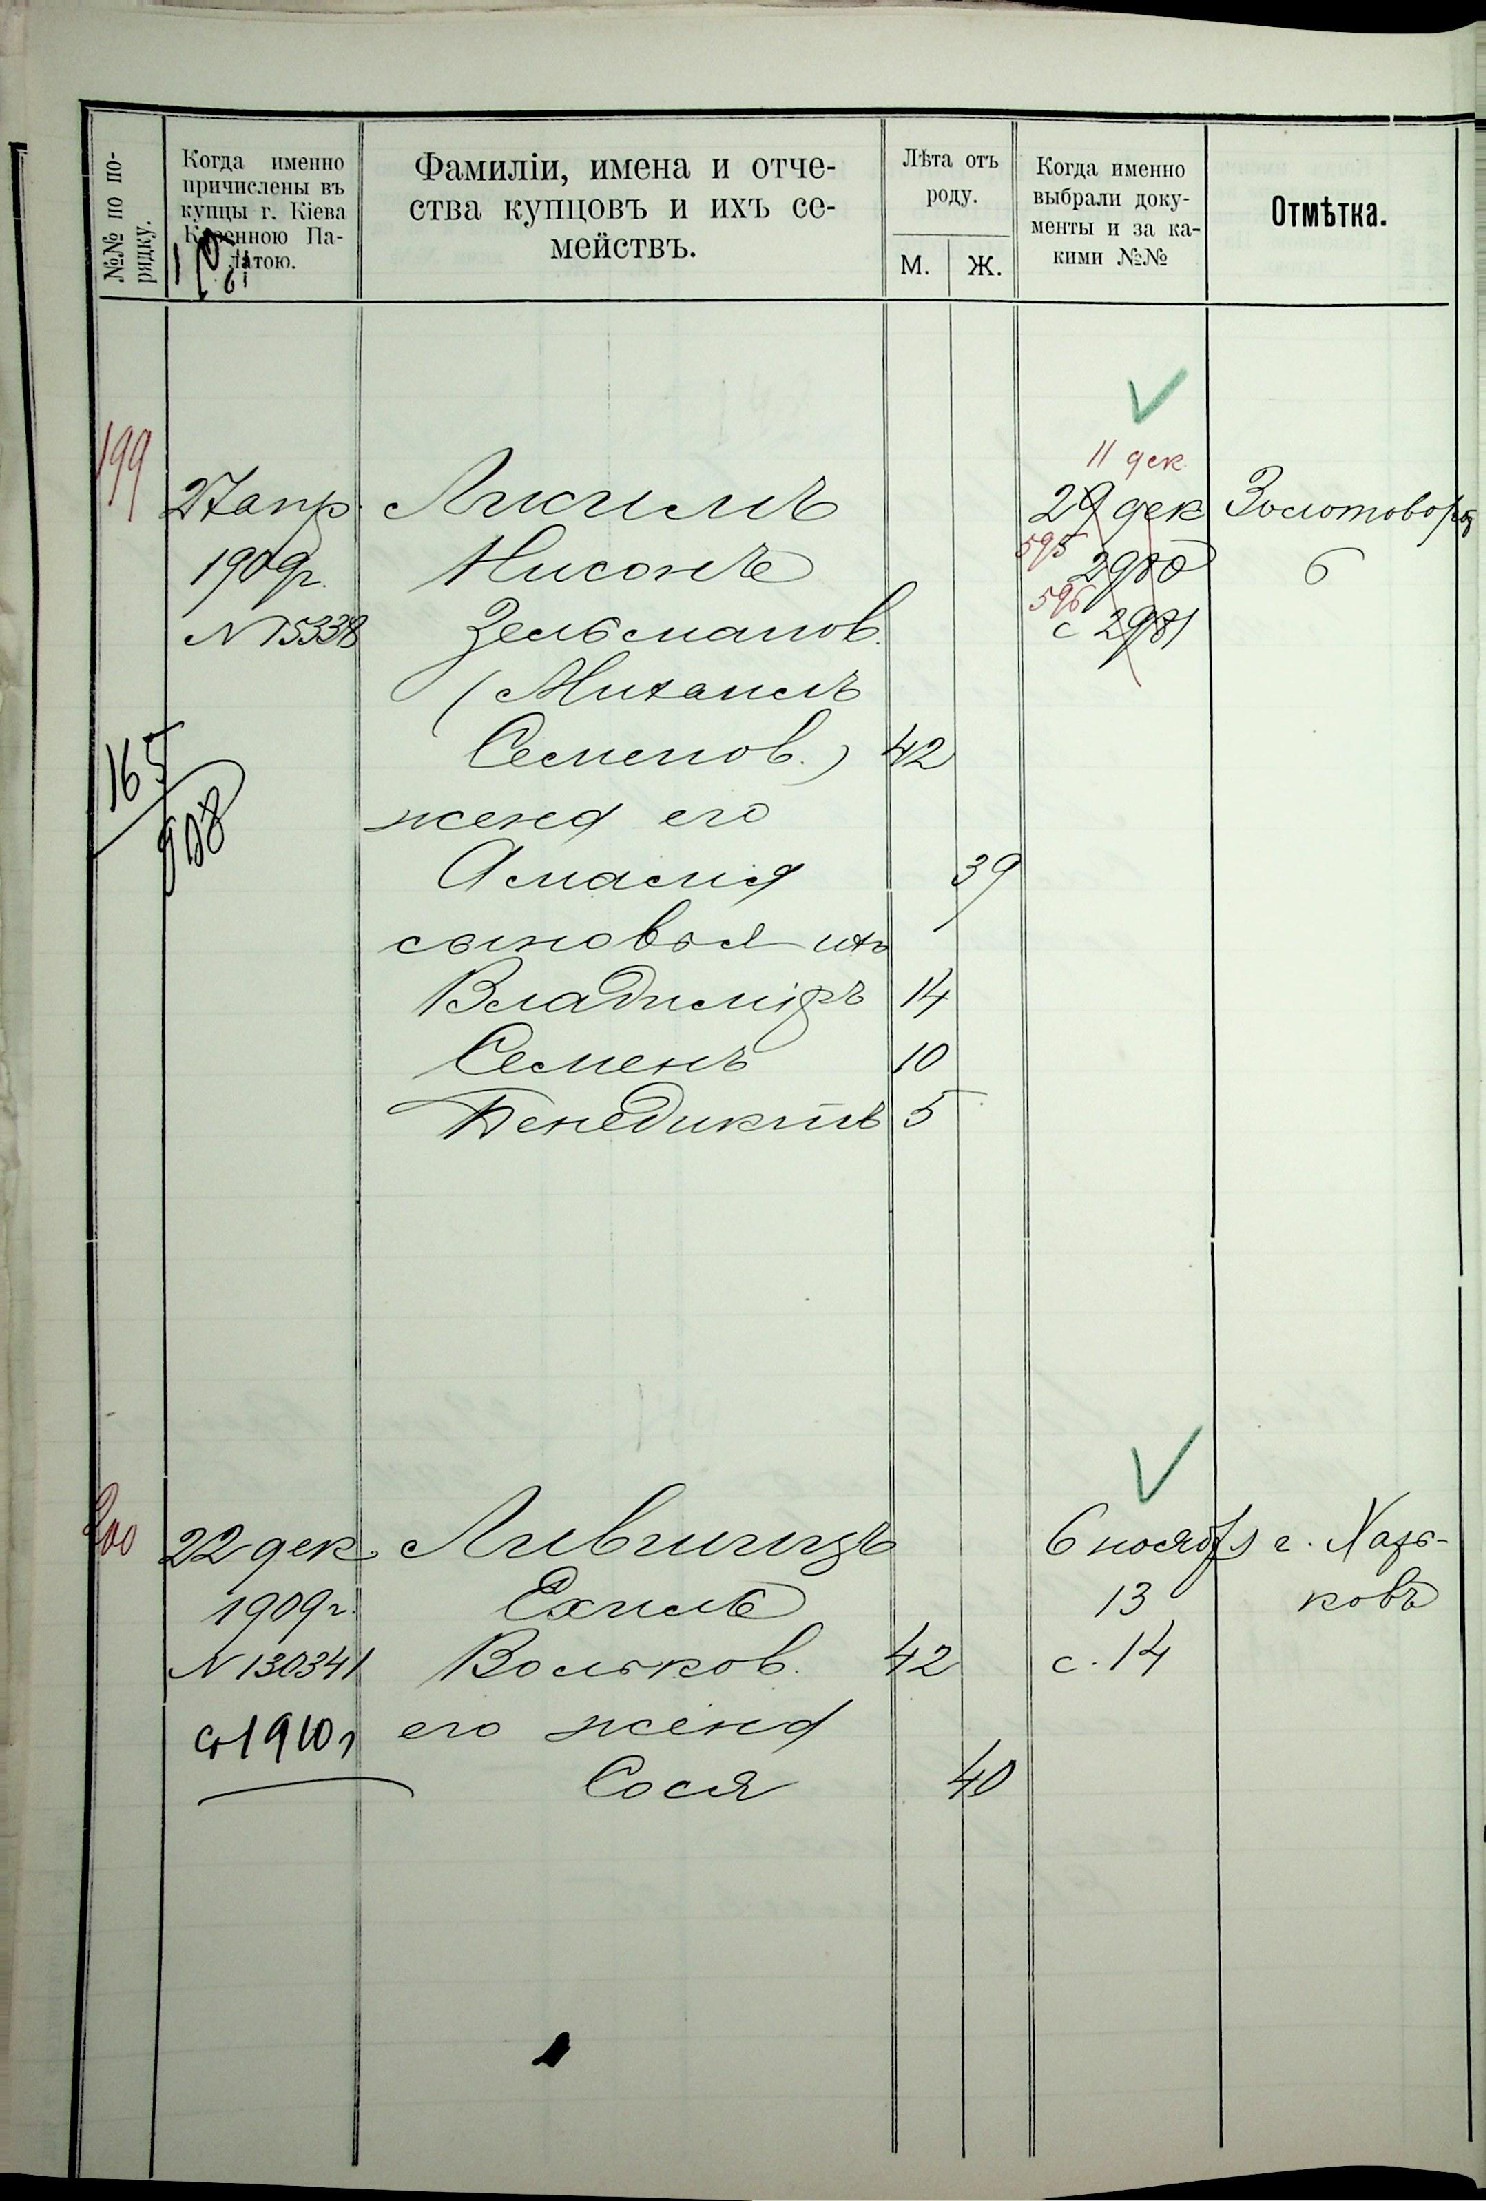 №№ по по-
рядку.
Когда именно
причислены въ
купцы г. Кіева
Казенною Па-
латою.
Фамиліи, имена и отче-
ства купцовъ и ихъ се-
мействъ.
Лѣта отъ
роду.
М. Ж.
Когда именно
выбрали доку-
менты и за ка-
кими №№
Отмѣтка.
11 дек
199 27 апр. 29 дек Золотоворот
1909 г. Нисонъ 595 2980 6
N 15338 Зельманов. 596 с 2981
(Михаилъ
Семенов.) 42
165
908
жена его
Амалия 39
сыновья ихъ
Владиміръ 14
Семенъ 10
Бенедиктъ 5
200 22 дек. Лившицъ 6 ноября г. Харь-
1909 г. Ехиль 13 ковъ
N 130341 Вольков. 42 с. 14
с 1910 г его жена
Сося 40